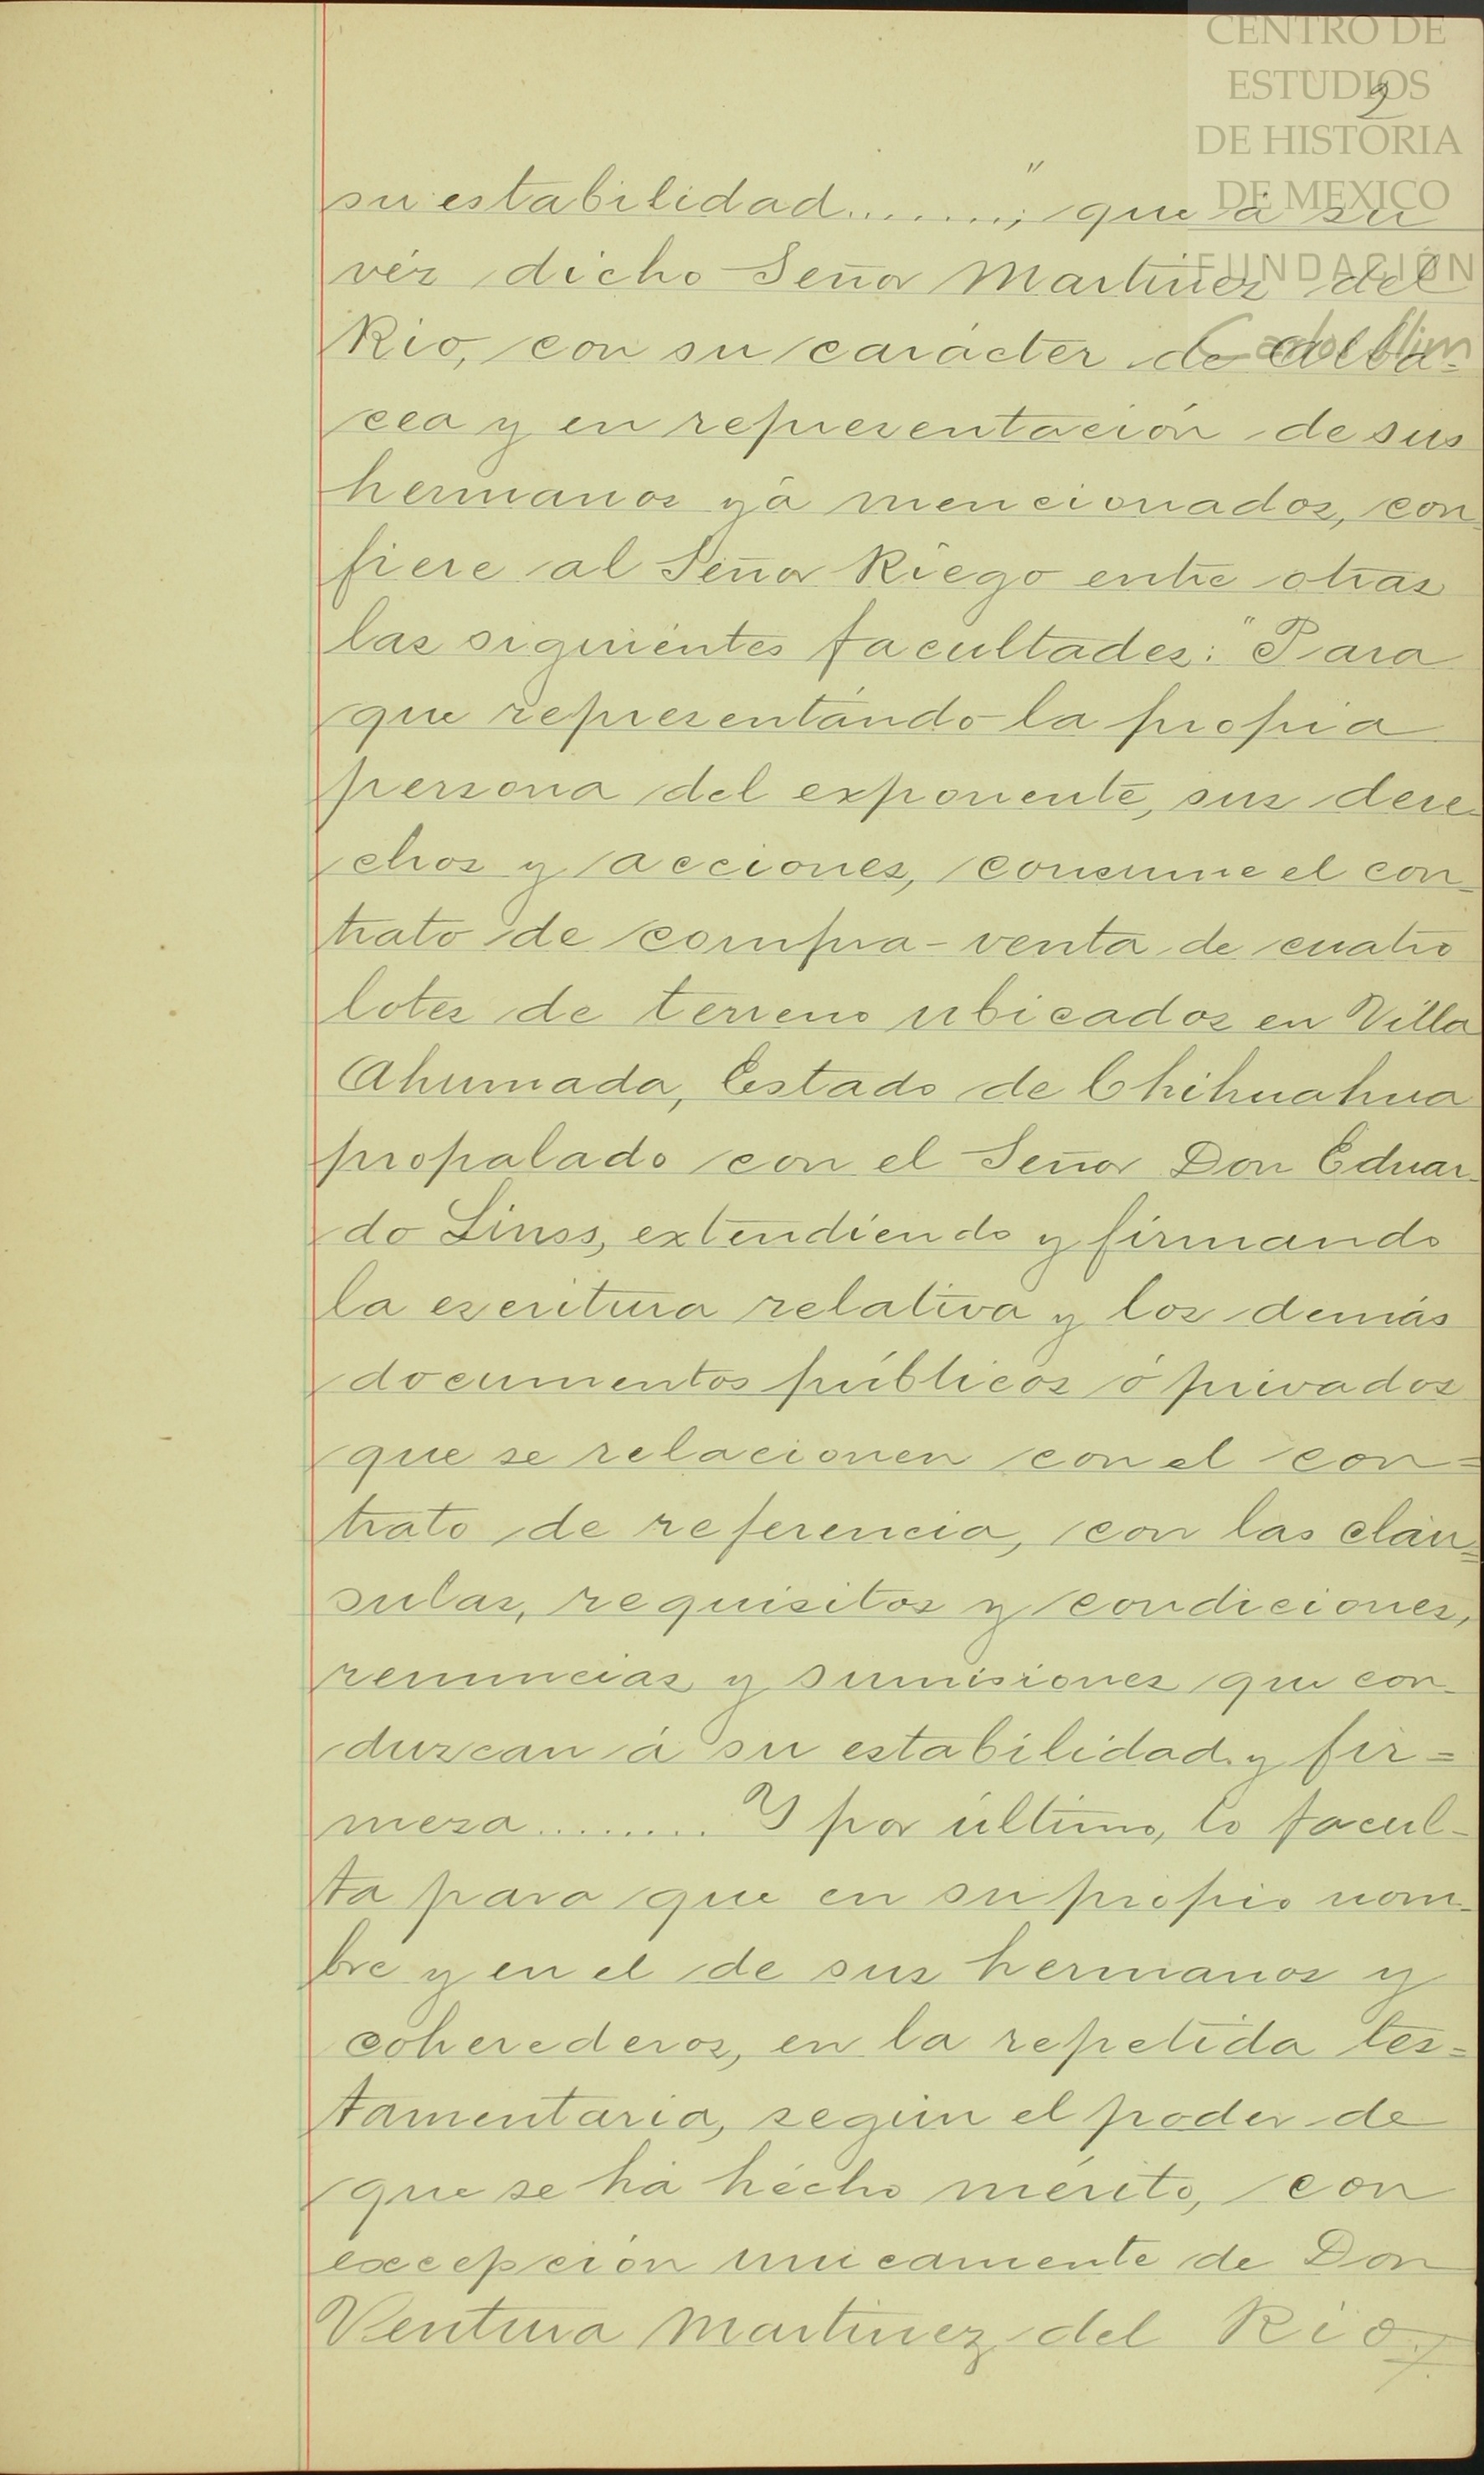 CENTRO DE
ESTUDIOS
DE HISTORIA
DE MEXICO
FUNDACIÓN
Carlos Slim
2
su estabilidad........;" que á su
véz dicho Señor Martinez del
Rio, con su carácter de alba-
cea y en representación de sus
hermanos yá mencionados, con-
fiere al Señor Riego entre otras
las siguientes facultades: "Para
que representándo la propia
persona del exponente, sus dere-
chos y acciones, consume el con-
trato de compra-venta de cuatro
lotes de terreno ubicados en Villa
Ahumada, Estado de Chihuahua
propalado con el Señor Don Eduar-
do Linss, extendiendo y firmando
la escritura relativa y los demás
documentos públicos ó privados
que se relacionen con el con=
trato de referencia, con las cláu=
sulas, requisitos y condiciones,
renuncias y sumisiones que con-
duzcan á su estabilidad y fir=
meza........ Y por último, lo facul-
ta para que en su propio nom-
bre y en el de sus hermanos y
coherederos, en la repetida tes=
tamentaria, según el poder de
que se há hécho mérito, con
excepción unicamente de Don
Ventura Martinez del Rio,